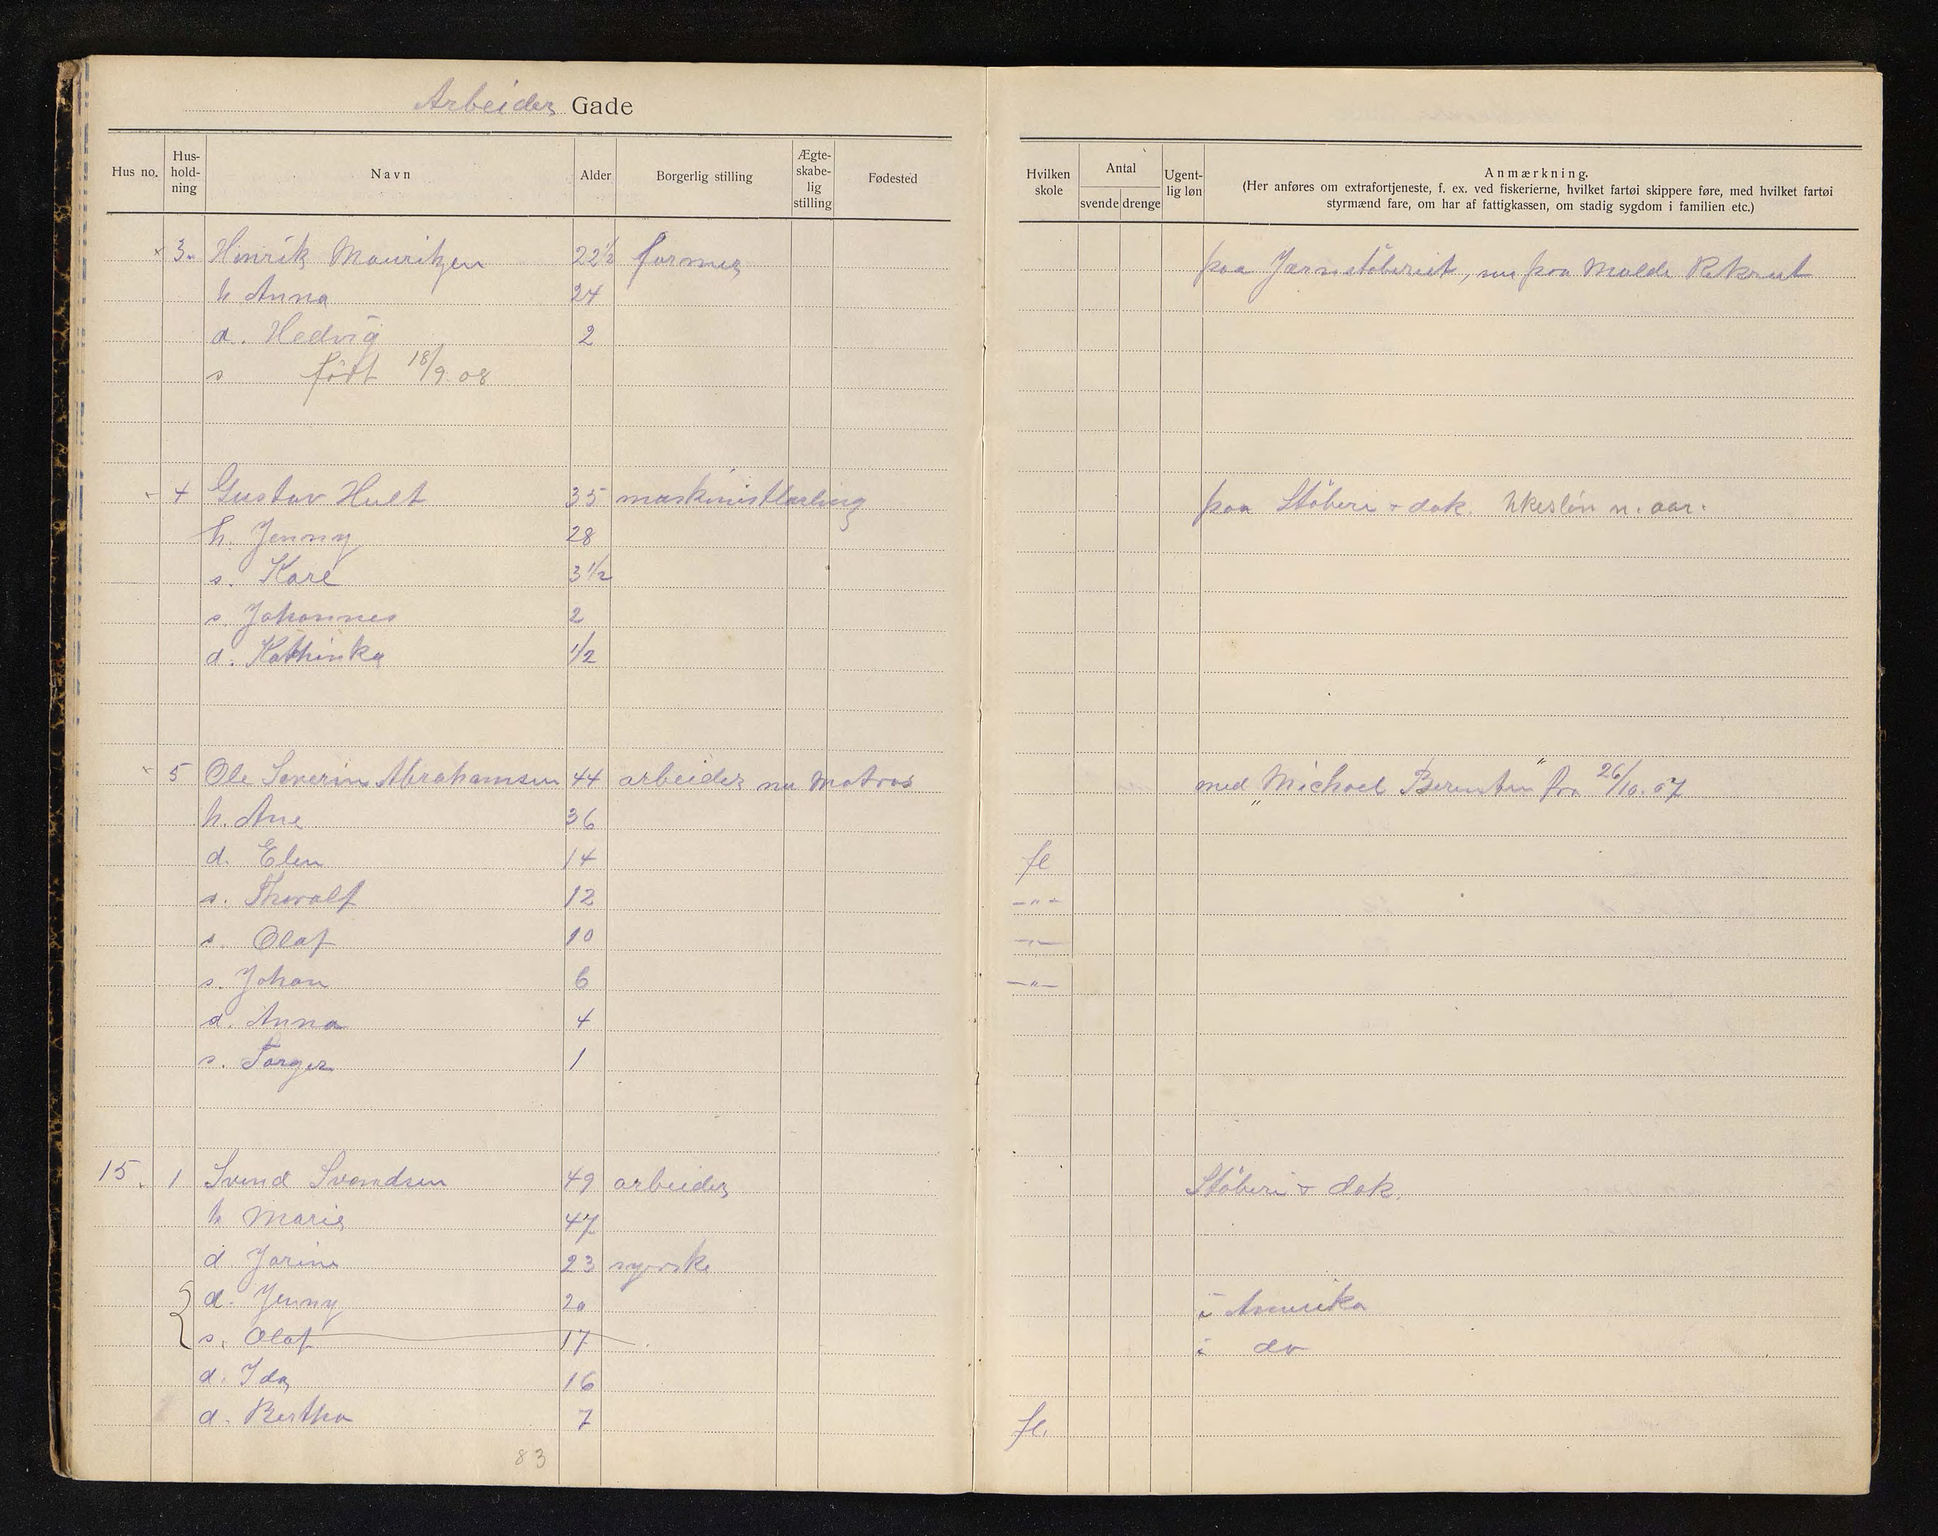 Arbeider Gade
Hus no. Hus-hold-ning Navn Alder Borgerlig stilling Ægte-skabe-lig stilling Fødested
Hvilken skole Antal svende drenge Ugent-lig løn Anmærkning.
(Her anføres om extrafortjeneste, f. ex. ved fiskerierne, hvilket fartøi skippere føre, med hvilket fartøi
styrmænd fare, om har af fattigkassen, om stadig sygdom i familien etc.)
3. Hinrik Mauritzen 22½ former paa Jærnstøberiet, nu paa Molde Rekrut
h Anna 24
d. Hedvig 2
s født 18/9.08
4 Gustav Hult 35 maskinistlærling paa Støberi + dok. Ukesløn n. aar.
h. Jenny 28
s. Kare 3½
s. Johannes 2
d. Kathinka ½
5 Ole Severin Abrahamsen 44 arbeider nu Matros med "Michael Berentsen" fra 26/10.07
h. Ane 36
d. Elen 14 fl
s. Thoralf 12 -"-
s. Olaf 10 -"-
s. Johan 6 -"-
d. Anna 4
s. Torger 1
15. 1 Svend Svendsen 49 arbeider Støberi + dok.
h Marie 47
d Jorine 23 syerske
d. Jenny 20 i Amerika
s. Olaf 17 i do
d. Ida 16
d. Bertha 7 fl.
83